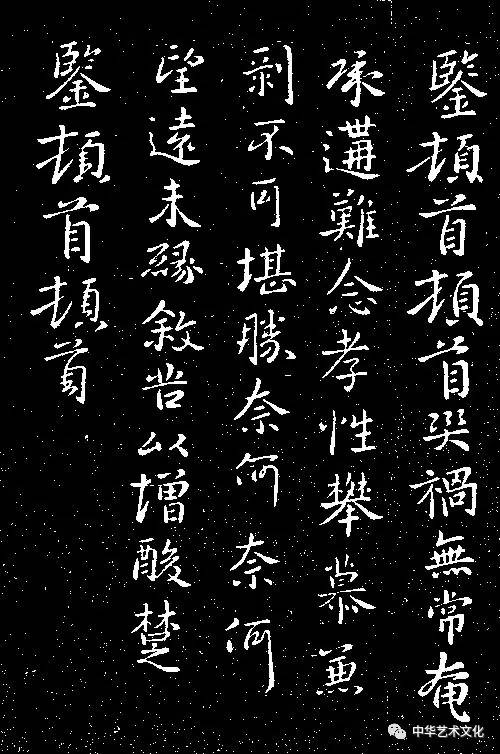 鑒頓首頓首災禍無常奄
承遘難念孝性攀慕兼
剝不可堪勝奈何奈何
望遠未緣敘苦以增酸楚
鑒頓首頓首
中华艺术文化